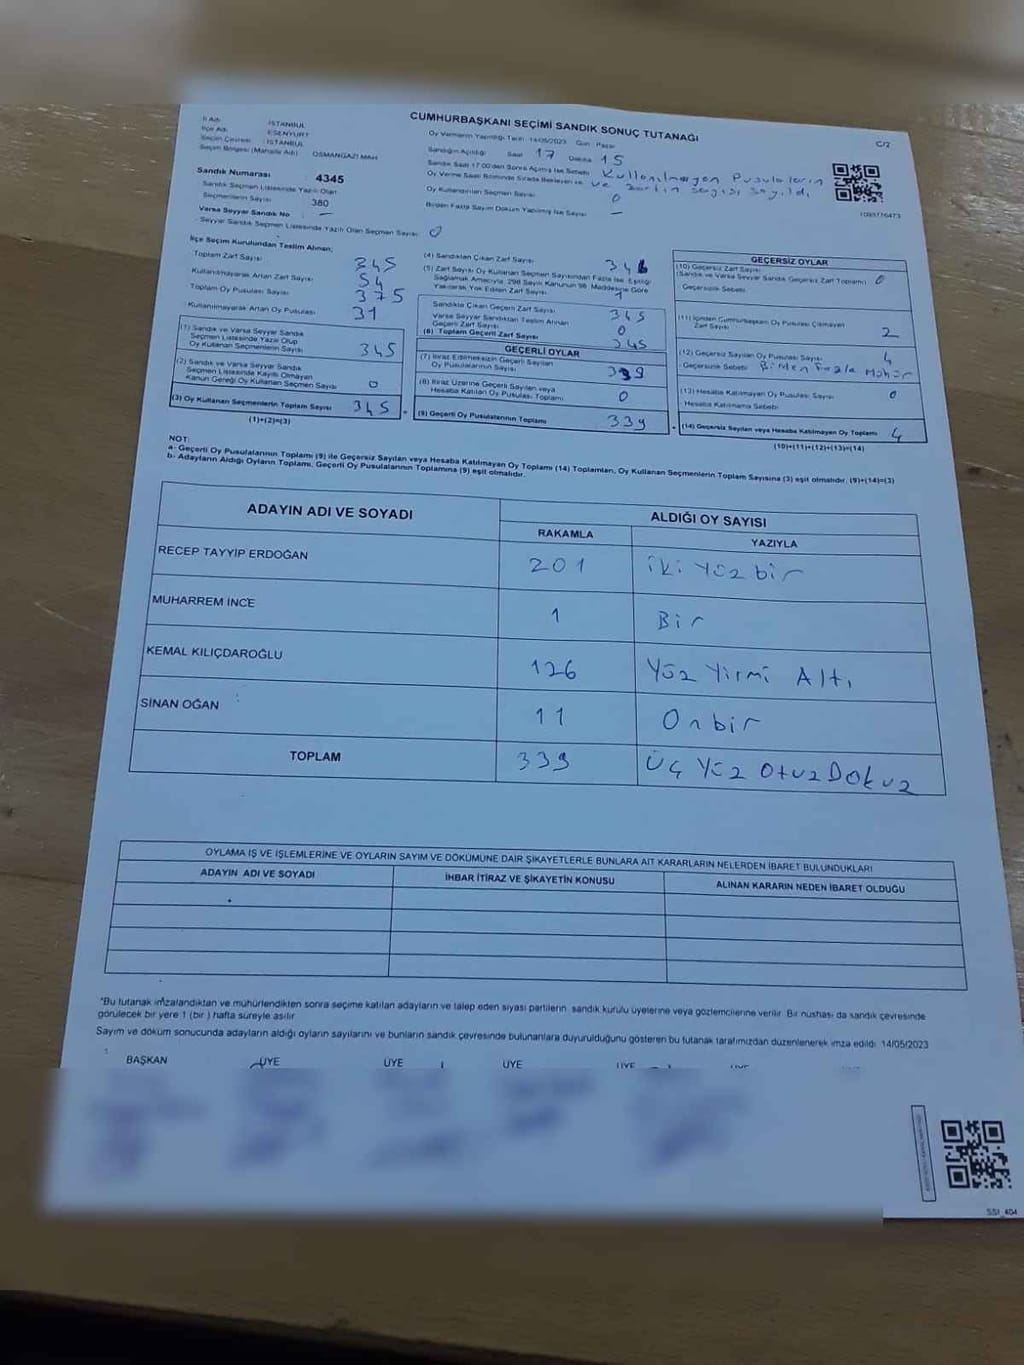 CUMHURBAŞKANI SEÇİMİ SANDIK SONUÇ TUTANAĞI
C/2
İl Adı İSTANBUL
İlçe Adı ESENYURT
Seçim Çevresi İSTANBUL
Seçim Bölgesi (Mahalle Adı) OSMANGAZİ MAH
Sandık Numarası 4345
Sandık Seçmen Listesinde Yazılı Olan
Seçmenlerin Sayısı 380
Varsa Seyyar Sandık No –
Seyyar Sandık Seçmen Listesinde Yazılı Olan Seçmen Sayısı 0
Oy Vermenin Yapıldığı Tarih 14/05/2023 Gün Pazar
Sandığın Açıldığı Saat 17 Dakika 15
Sandık Saat 17:00'den Sonra Açılmış İse Sebebi Kullanılmayan Pusulaların
ve zarfın sayısı sayıldı
Oy Verme Saati Bitiminde Sırada Bekleyen ve
Oy Kullandırılan Seçmen Sayısı 0
Birden Fazla Sayım Döküm Yapılmış İse Sayısı –
İlçe Seçim Kurulundan Teslim Alınan;
Toplam Zarf Sayısı 345
Kullanılmayarak Artan Zarf Sayısı 54
Toplam Oy Pusulası Sayısı 375
Kullanılmayarak Artan Oy Pusulası 31
(1) Sandık ve Varsa Seyyar Sandık
Seçmen Listesinde Yazılı Olup
Oy Kullanan Seçmenlerin Sayısı 345
(2) Sandık ve Varsa Seyyar Sandık
Seçmen Listesinde Kayıtlı Olmayan
Kanun Gereği Oy Kullanan Seçmen Sayısı 0
(3) Oy Kullanan Seçmenlerin Toplam Sayısı 345
(1)+(2)=(3)
(4) Sandıktan Çıkan Zarf Sayısı 346
(5) Zarf Sayısı Oy Kullanan Seçmen Sayısından Fazla İse, Eşitliği
Sağlamak Amacıyla, 298 Sayılı Kanunun 98. Maddesine Göre
Yakılarak Yok Edilen Zarf Sayısı 1
Sandıkta Çıkan Geçerli Zarf Sayısı 345
Varsa Seyyar Sandıktan Teslim Alınan
Geçerli Zarf Sayısı 0
(6) Toplam Geçerli Zarf Sayısı 345
GEÇERLİ OYLAR
(7) İtiraz Edilmeksizin Geçerli Sayılan
Oy Pusulalarının Sayısı 339
(8) İtiraz Üzerine Geçerli Sayılan veya
Hesaba Katılan Oy Pusulası Toplamı 0
(9) Geçerli Oy Pusulalarının Toplamı 339
1093116473
GEÇERSİZ OYLAR
(10) Geçersiz Zarf Sayısı
(Sandık ve Varsa Seyyar Sandık Geçersiz Zarf Toplamı) 0
Geçersizlik Sebebi
(11) İçinden Cumhurbaşkanı Oy Pusulası Çıkmayan
Zarf Sayısı 2
(12) Geçersiz Sayılan Oy Pusulası Sayısı 4
Geçersizlik Sebebi Birden Fazla Mühür
(13) Hesaba Katılmayan Oy Pusulası Sayısı 0
Hesaba Katılmama Sebebi
(14) Geçersiz Sayılan veya Hesaba Katılmayan Oy Toplamı 4
(10)+(11)+(12)+(13)=(14)
NOT:
a- Geçerli Oy Pusulalarının Toplamı (9) ile Geçersiz Sayılan veya Hesaba Katılmayan Oy Toplamı (14) Toplamları, Oy Kullanan Seçmenlerin Toplam Sayısına (3) eşit olmalıdır. (9)+(14)=(3)
b- Adayların Aldığı Oyların Toplamı, Geçerli Oy Pusulalarının Toplamına (9) eşit olmalıdır.
ADAYIN ADI VE SOYADI ALDIĞI OY SAYISI
RAKAMLA YAZIYLA
RECEP TAYYİP ERDOĞAN 201 iki Yüz bir
MUHARREM İNCE 1 Bir
KEMAL KILIÇDAROĞLU 126 Yüz Yirmi Altı
SİNAN OĞAN 11 Onbir
TOPLAM 339 Üç Yüz Otuz Dokuz
OYLAMA İŞ VE İŞLEMLERİNE VE OYLARIN SAYIM VE DÖKÜMÜNE DAİR ŞİKAYETLERLE BUNLARA AİT KARARLARIN NELERDEN İBARET BULUNDUKLARI
ADAYIN ADI VE SOYADI İHBAR İTİRAZ VE ŞİKAYETİN KONUSU ALINAN KARARIN NEDEN İBARET OLDUĞU
"Bu tutanak imzalandıktan ve mühürlendikten sonra seçime katılan adayların ve talep eden siyasi partilerin sandık kurulu üyelerine veya gözlemcilerine verilir. Bir nüshası da sandık çevresinde
görülecek bir yere 1 (bir ) hafta süreyle asılır
Sayım ve döküm sonucunda adayların aldığı oyların sayılarını ve bunların sandık çevresinde bulunanlara duyurulduğunu gösteren bu tutanak tarafımızdan düzenlenerek imza edildi. 14/05/2023
BAŞKAN ÜYE ÜYE ÜYE
SSI_404